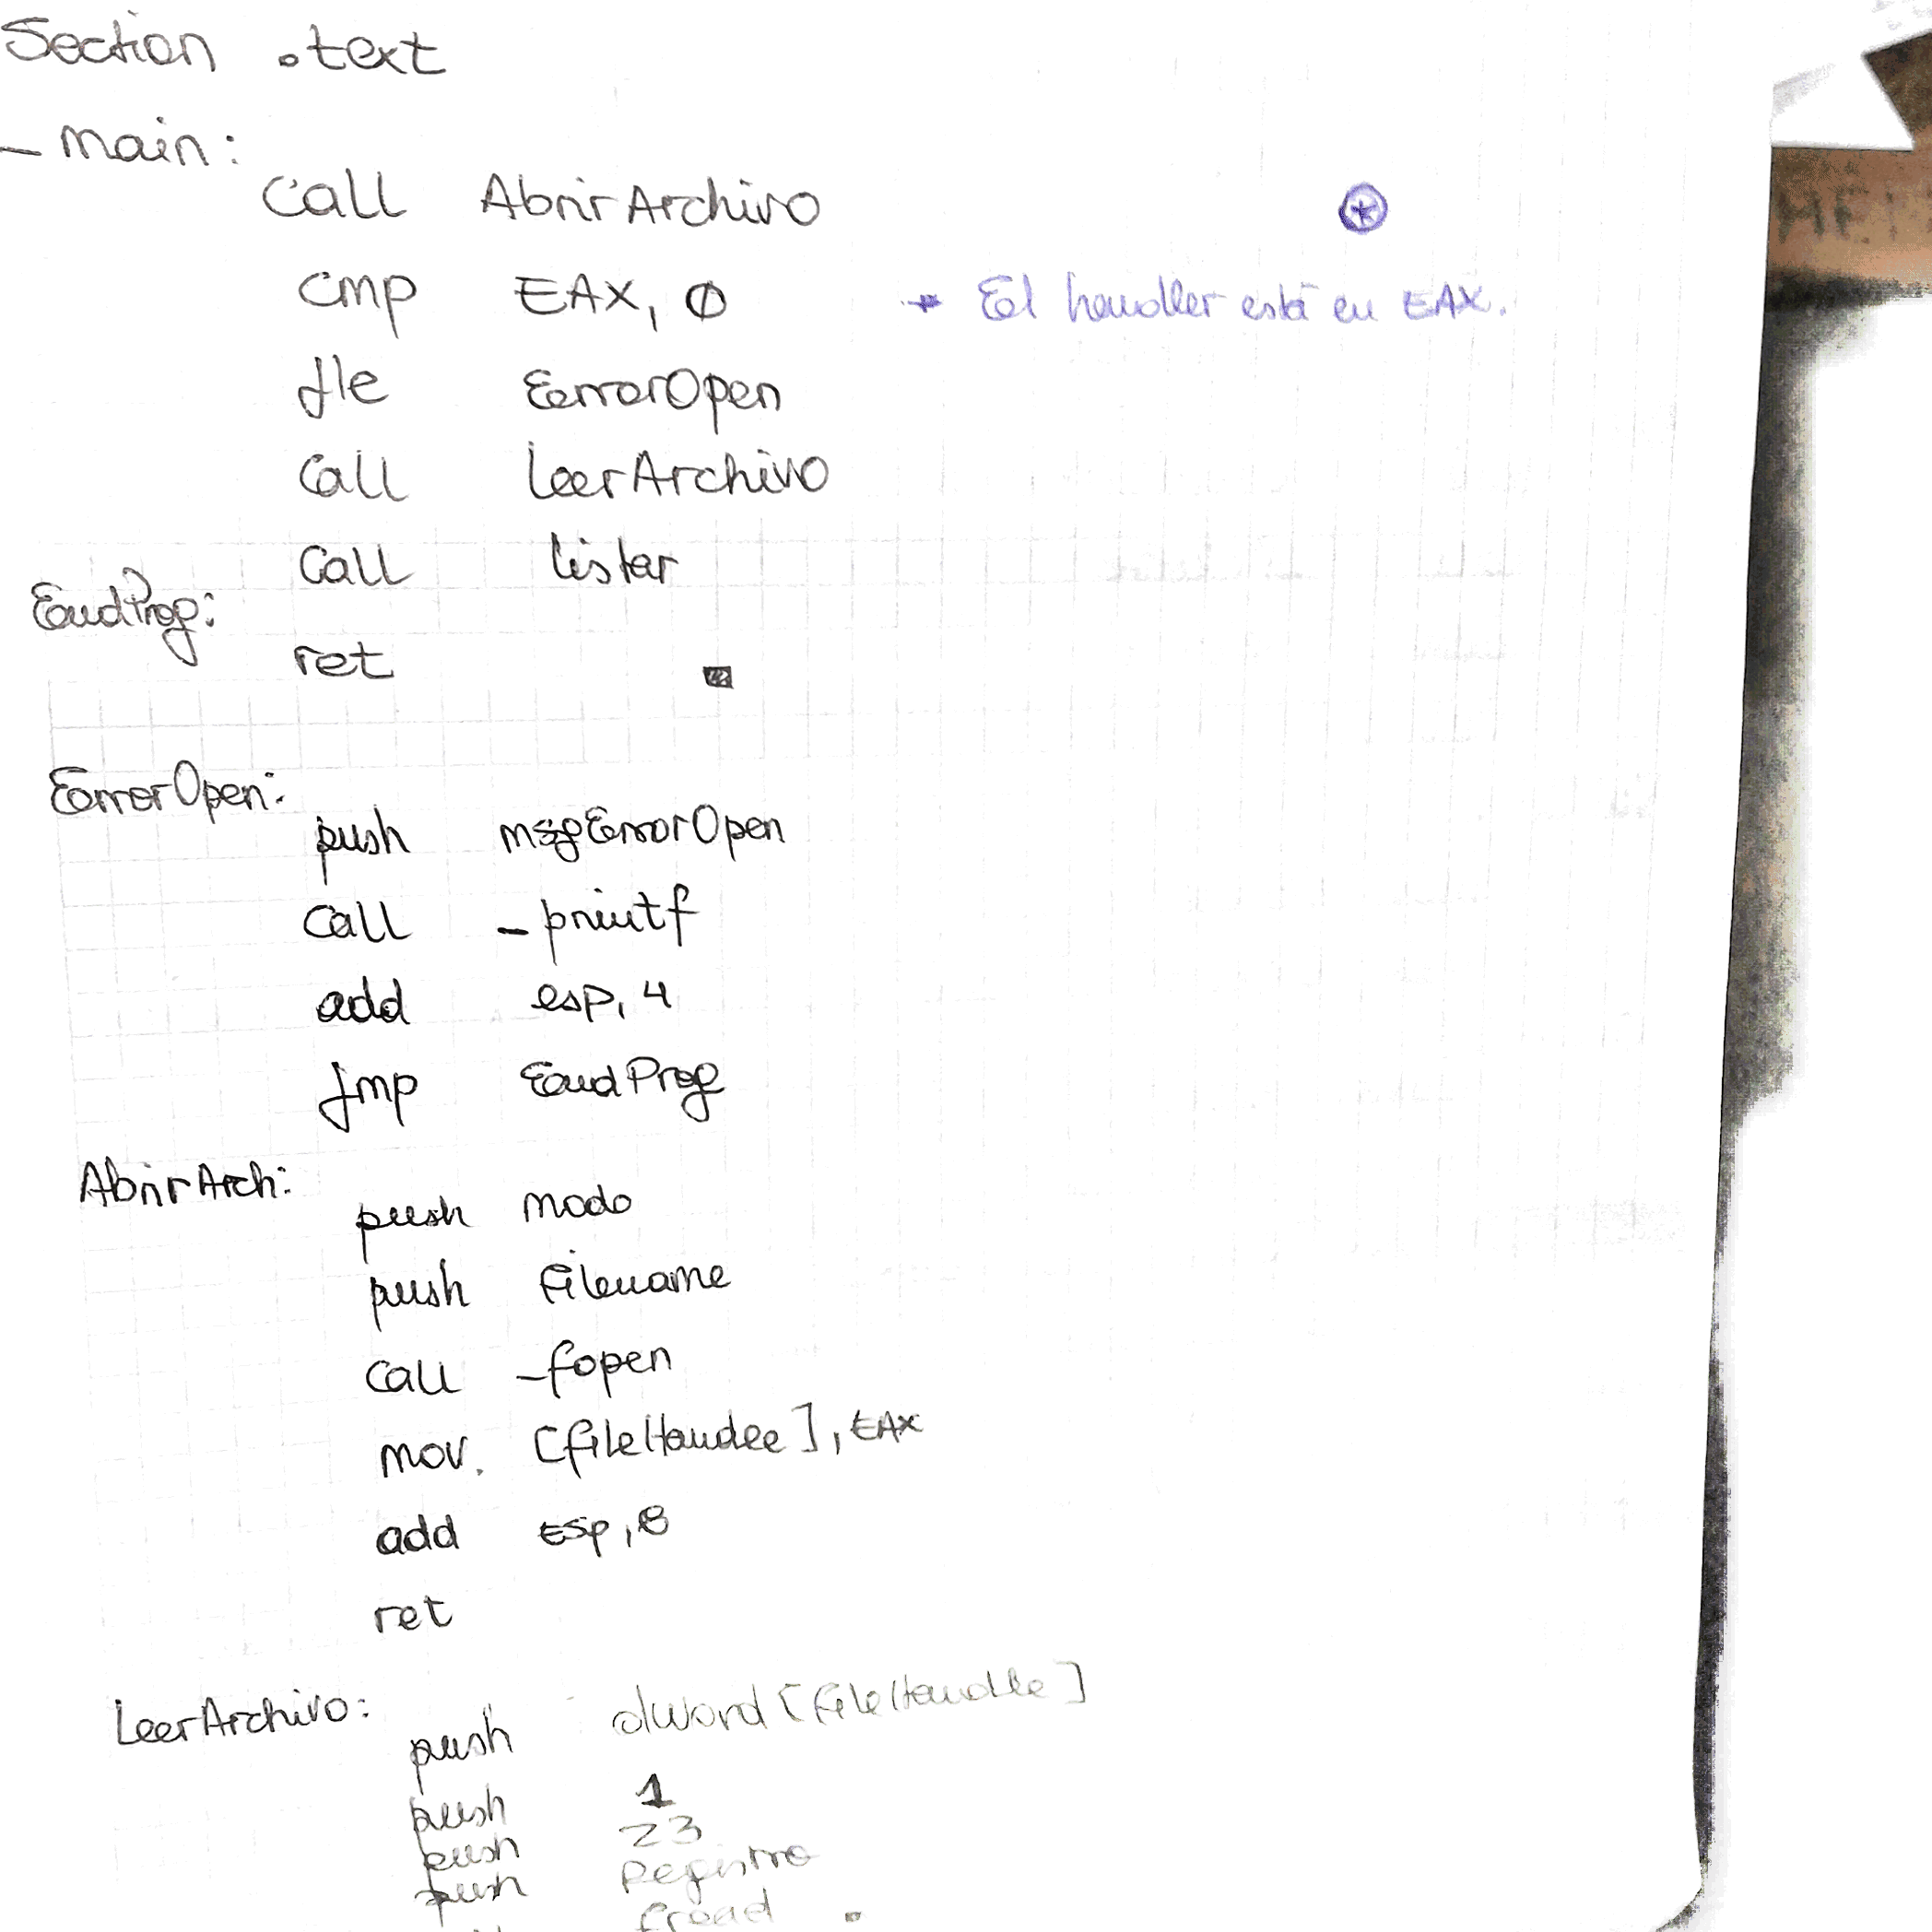 Section .text
_main:
call AbrirArchivo
cmp EAX, 0 → El handler está en EAX.
jle ErrorOpen
call LeerArchivo
call listar
EndProg:
ret
ErrorOpen:
push msgErrorOpen
call _printf
add esp, 4
jmp EndProg
AbrirArch:
push modo
push filename
call _fopen
mov [fileHandle], EAX
add ESP, 8
ret
LeerArchivo:
push dword [fileHandle]
push 1
push 23
push Registro
fread